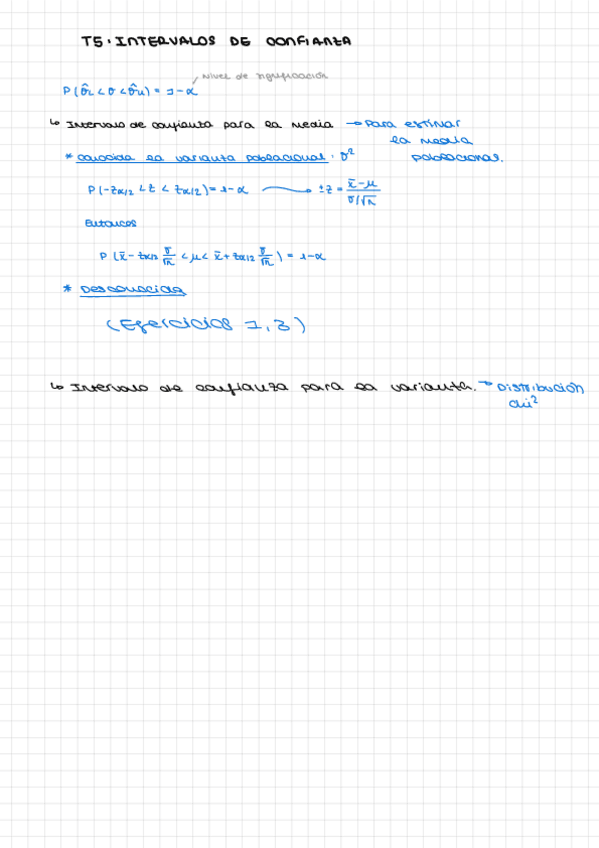 T5. INTERVALOS DE CONFIANZA
Nivel de significación
P(θ̂L < θ < θ̂u) = 1-α
↳ Intervalo de confianza para la media → Para estimar
la media
poblacional.
* conocida la varianza poblacional: σ²
P(-zα/2 < z < zα/2) = 1-α → ±z = (x̄-μ)/(σ/√n)
Entonces
P(x̄ - zα/2 σ/√n < μ < x̄ + zα/2 σ/√n) = 1-α
* Desconocida
(Ejercicios 1, 3)
↳ Intervalo de confianza para la varianza. → Distribución
chi²